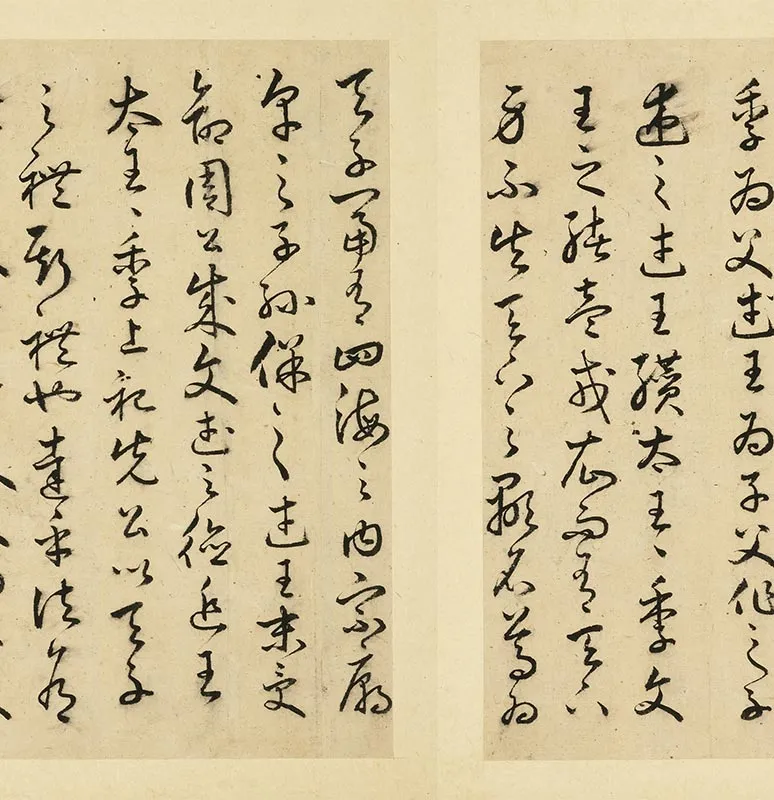 季為父武王為子父作之子
述之武王纘太王〻季文
王之緒壹戎衣而有天下
身不失天下之顯名尊為
天子富有四海之內宗廟
享之子孫保之武王末受
命周公成文武之德追王
太王〻季上祀先公以天子
之禮斯禮也達乎諸侯